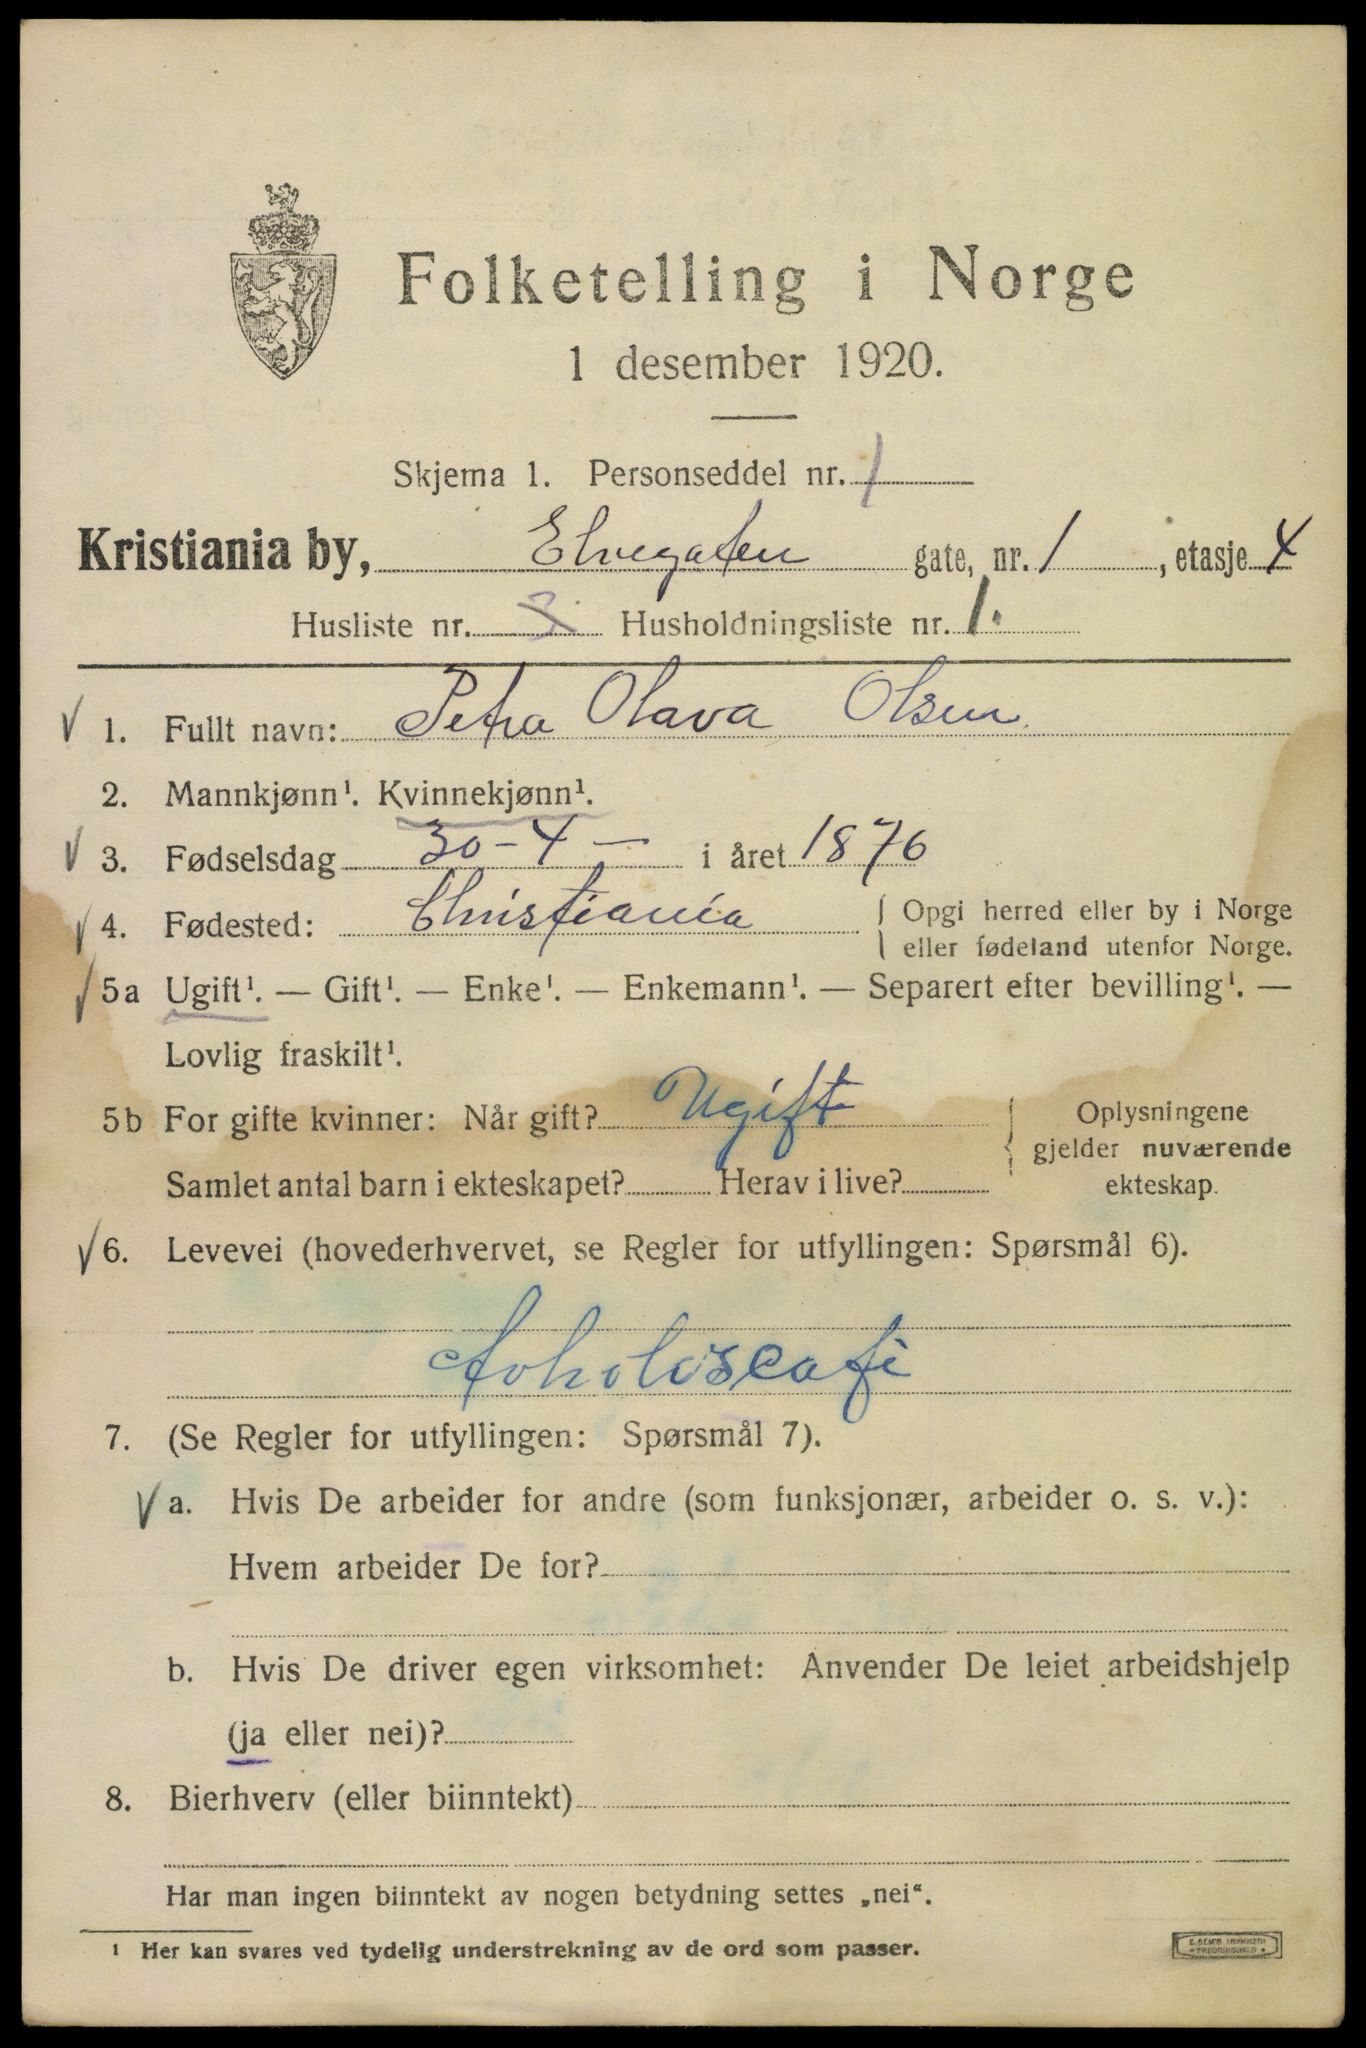 Folketelling i Norge
1 desember 1920.
Skjema 1. Personseddel nr. 1
Kristiania by, Elvegaten gate, nr. 1, etasje 4
Husliste nr. 3 Husholdningsliste nr. 1.
1. Fullt navn: Petra Olava Olsen
2. Mannkjønn¹. Kvinnekjønn¹.
3. Fødselsdag 30-4- i året 1876
4. Fødested: Christiania { Opgi herred eller by i Norge
eller fødeland utenfor Norge.
5a Ugift¹. — Gift¹. — Enke¹. — Enkemann¹. — Separert efter bevilling¹. —
Lovlig fraskilt¹.
5b For gifte kvinner: Når gift? Ugift
Samlet antal barn i ekteskapet? Herav i live?
Oplysningene
gjelder nuværende
ekteskap.
6. Levevei (hovederhvervet, se Regler for utfyllingen: Spørsmål 6).
Avholdscafe
7. (Se Regler for utfyllingen: Spørsmål 7).
a. Hvis De arbeider for andre (som funksjonær, arbeider o. s. v.):
Hvem arbeider De for?
b. Hvis De driver egen virksomhet: Anvender De leiet arbeidshjelp
(ja eller nei)?
8. Bierhverv (eller biinntekt)
Har man ingen biinntekt av nogen betydning settes „nei“.
¹ Her kan svares ved tydelig understrekning av de ord som passer.